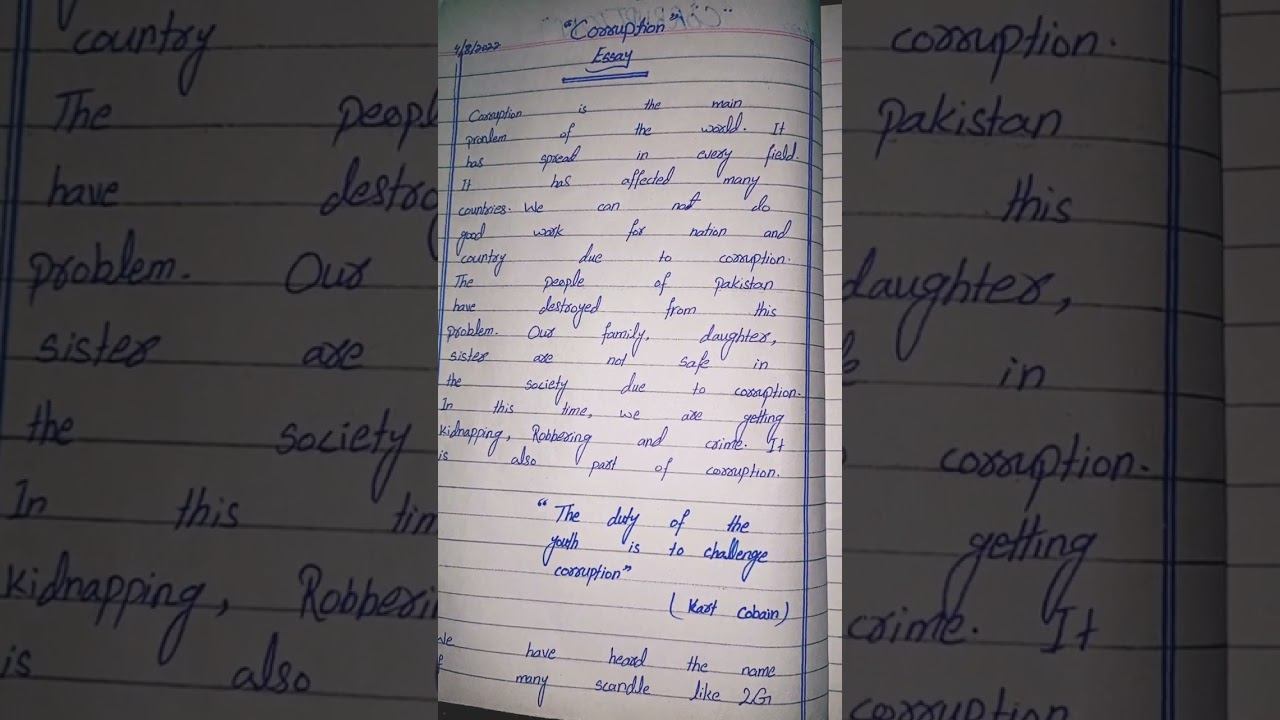 "Corruption"
4/8/2022
Essay
Corruption is the main
pronlem of the world. It
has spread in every field.
It has affected many
countries. We can not do
good work for nation and
country due to corruption.
The people of pakistan
have destroyed from this
problem. Our family, daughter,
sister are not safe in
the society due to corruption.
In this time, we are getting
kidnapping, Robbering and crime. It
is also part of corruption.
"The duty of the
youth is to challenge
corruption"
(Kart Cobain)
have heard the name
many scandle like 2G